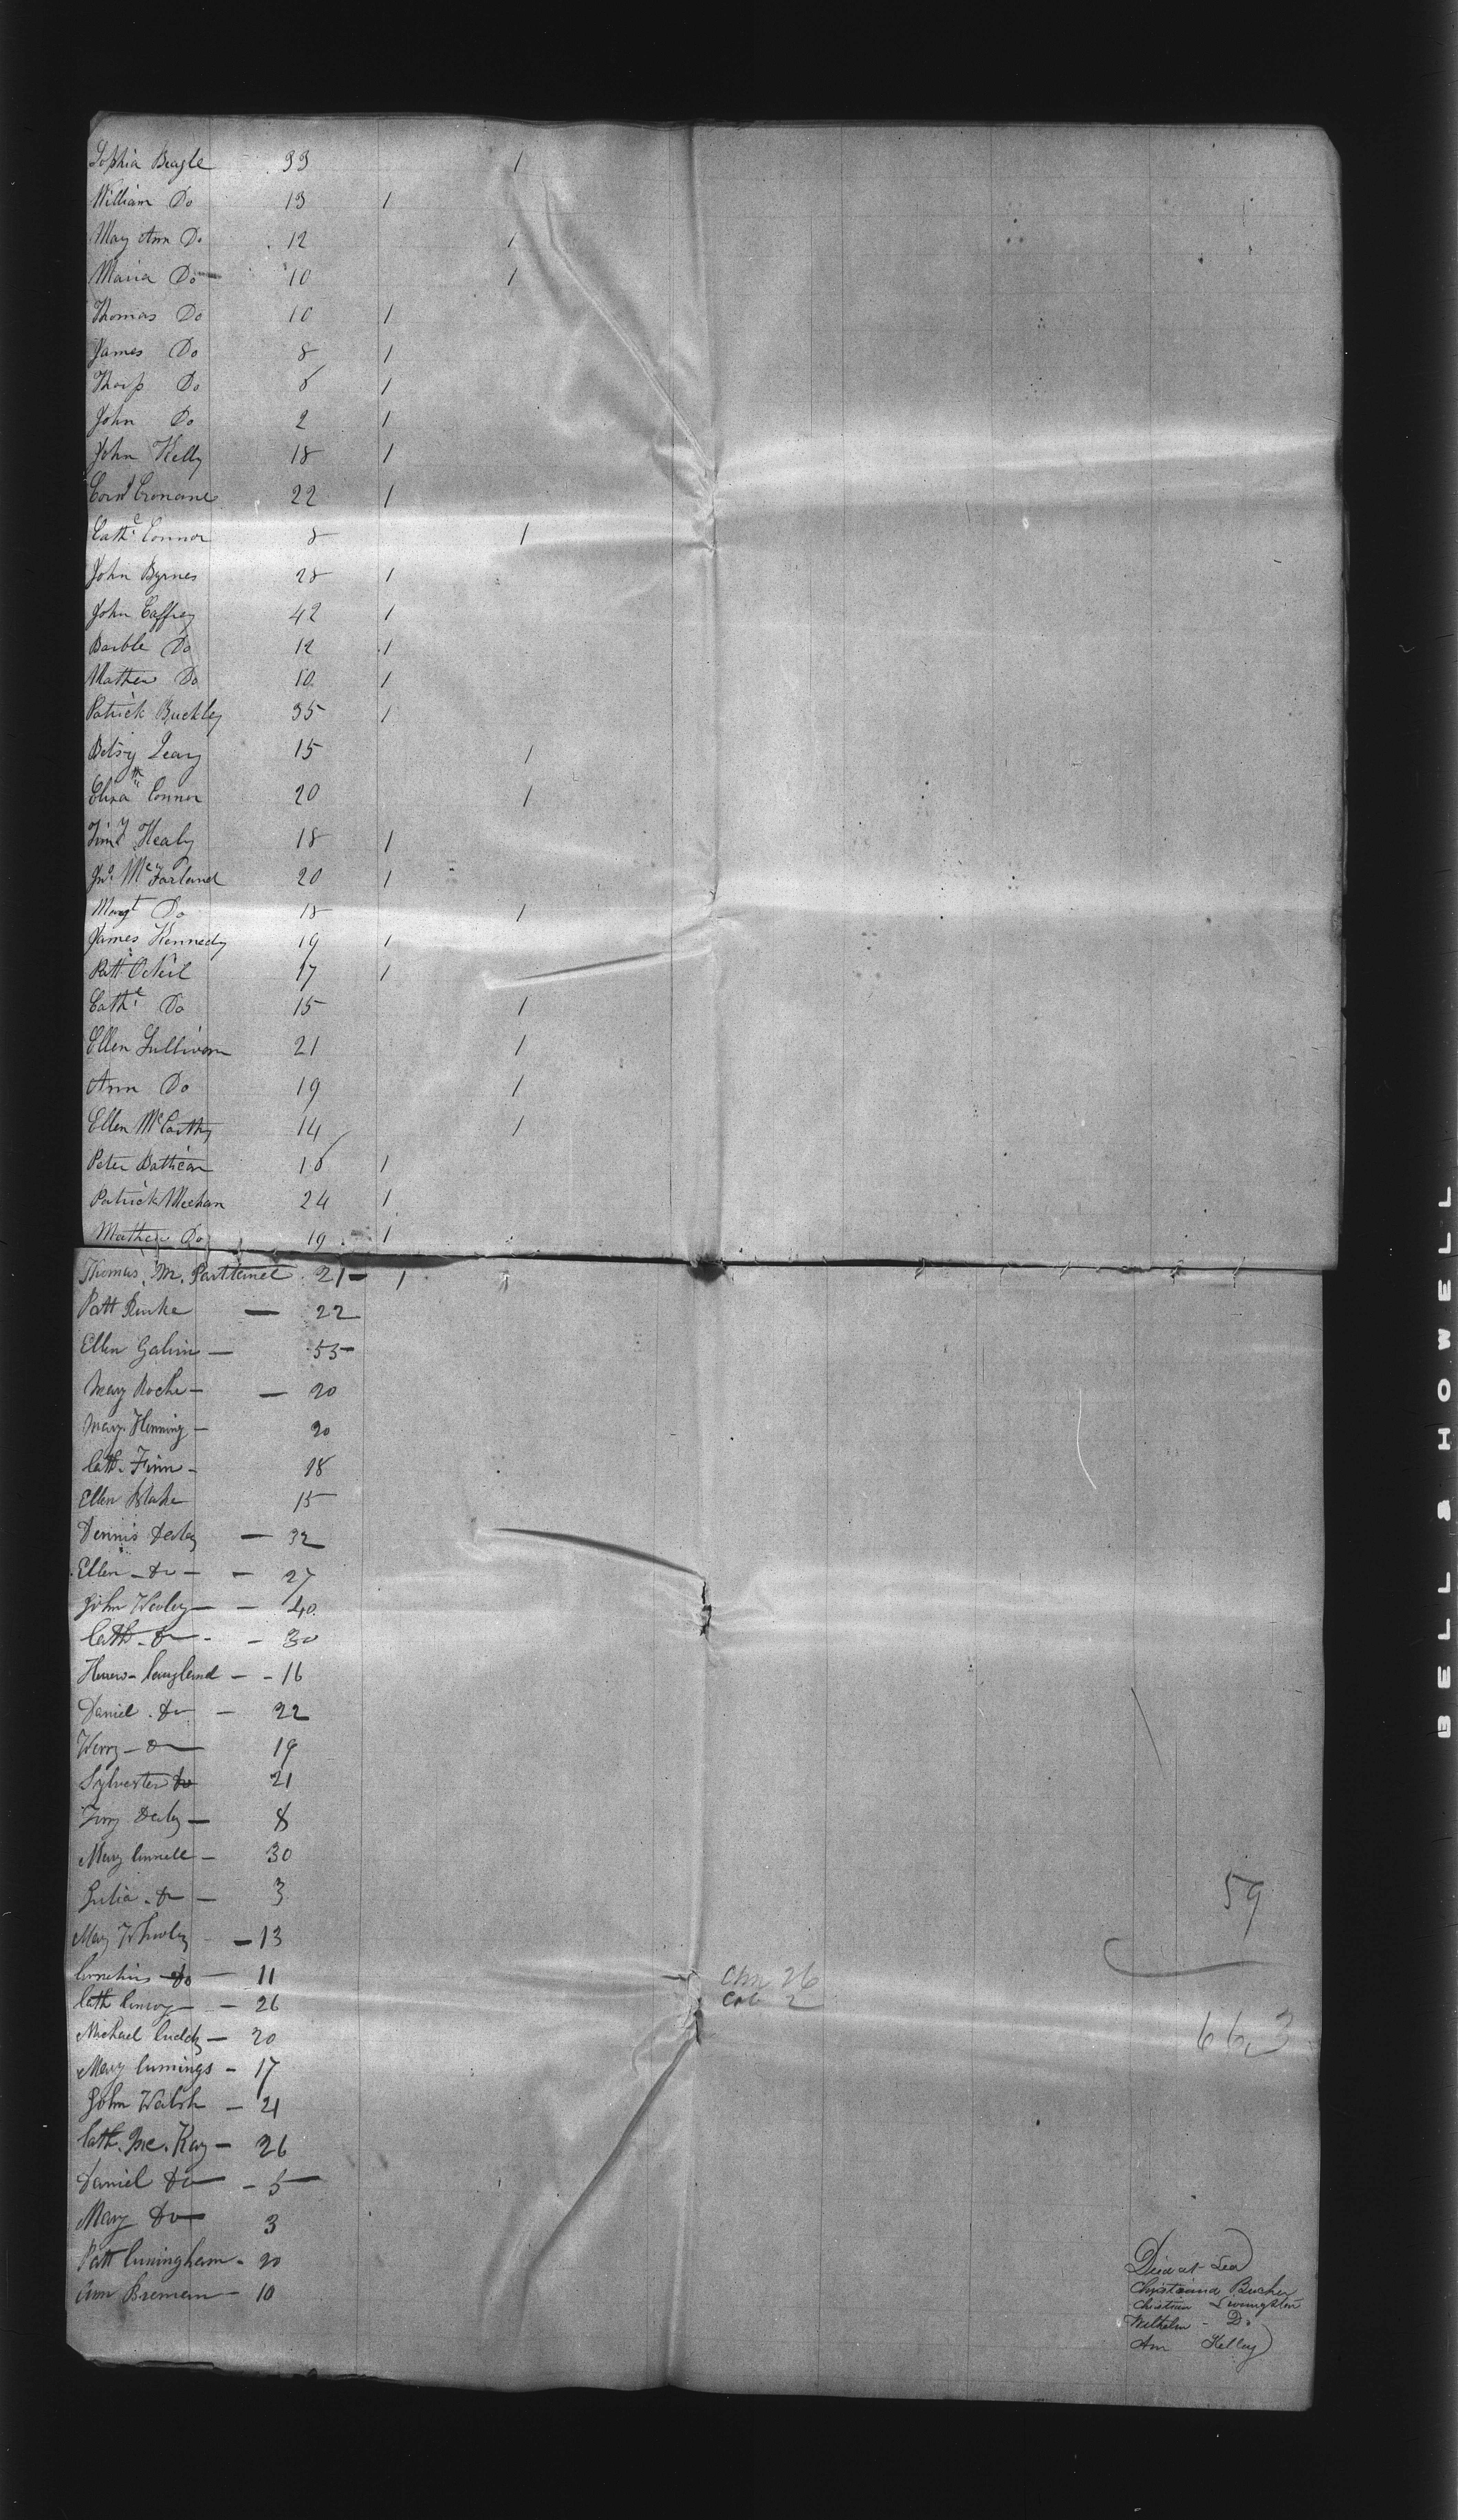 Sophia Beagle 33 1
William Do 13 1
Mary Ann Do 12 1
Maria Do 10 1
Thomas Do 10 1
James Do 8 1
Thos Do 6 1
John Do 2 1
John Kelly 18 1
Corns Cronane 22 1
Cathe Connor 8 1
John Byrnes 28 1
John Caffrey 42 1
Barble Do 12 1
Mathew Do 10 1
Patrick Buckley 35 1
Betsy Leary 15 1
Eliza Connor 20 1
Timy Healy 18 1
Jno. McFarland 20 1
Margt Do 18 1
James Kennedy 19 1
Patt. O'Neil 17 1
Cathe Do 15 1
Ellen Sullivan 21 1
Ann Do 19 1
Ellen McCarthy 14 1
Peter Battican 16 1
Patrick Meehan 24 1
Mathew Do 19 1
Thomas M. Parttanet 21 - 1
Patt — 22
Ellen Galvin — 55
Mary Roche - — 20
Mary Henning - 20
Cath. Finn - 18
Ellen Blake 15
Dennis Daley — 32
Ellen - do - - 27
John Healey — - 40
Cath - do - - 30
- - 16
Daniel . do - 22
- do 19
Sylvester do 21
Daley — 8
Mary Connell - 30
Julia - do - 3
Mary — 13
Cornelius do — 11
Cath Conroy - - 26
Michael Cuddy — 20
Mary Cumings - 17
John Walsh - 21
Cath. Mc. Kay - 26
Daniel do - 5
Mary do 3
Patt Cuningham - 20
Ann Brenan - 10
59
Chn 26
Cab 2
663
Died at Sea
Christiana Bucher
Christian Livingston
Wilhelm - Do
Ann Kelley
BELL & HOWELL